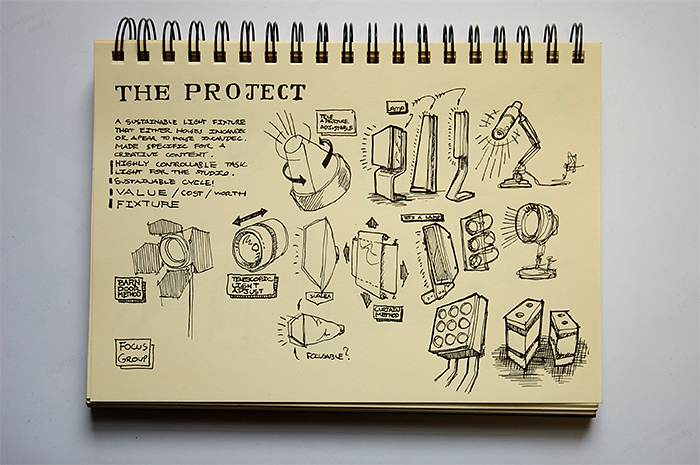 THE PROJECT
A SUSTAINABLE LIGHT FIXTURE
THAT EITHER HOUSES INCANDEC
OR APEAR TO HOUSE INCANDEC.
MADE SPECIFIC FOR A
CREATIVE CONTEXT.
HIGHLY CONTROLLABLE TASK
LIGHT FOR THE STUDIO.
SUSTAINABLE CYCLE!
VALUE / COST / WORTH
FIXTURE
ADJUSTABLE
LAMP
BARN
DOOR
METHOD
TELESCOPIC
LIGHT
ADJUST
CURTAIN
METHOD
FOLDABLE?
FOCUS
GROUP